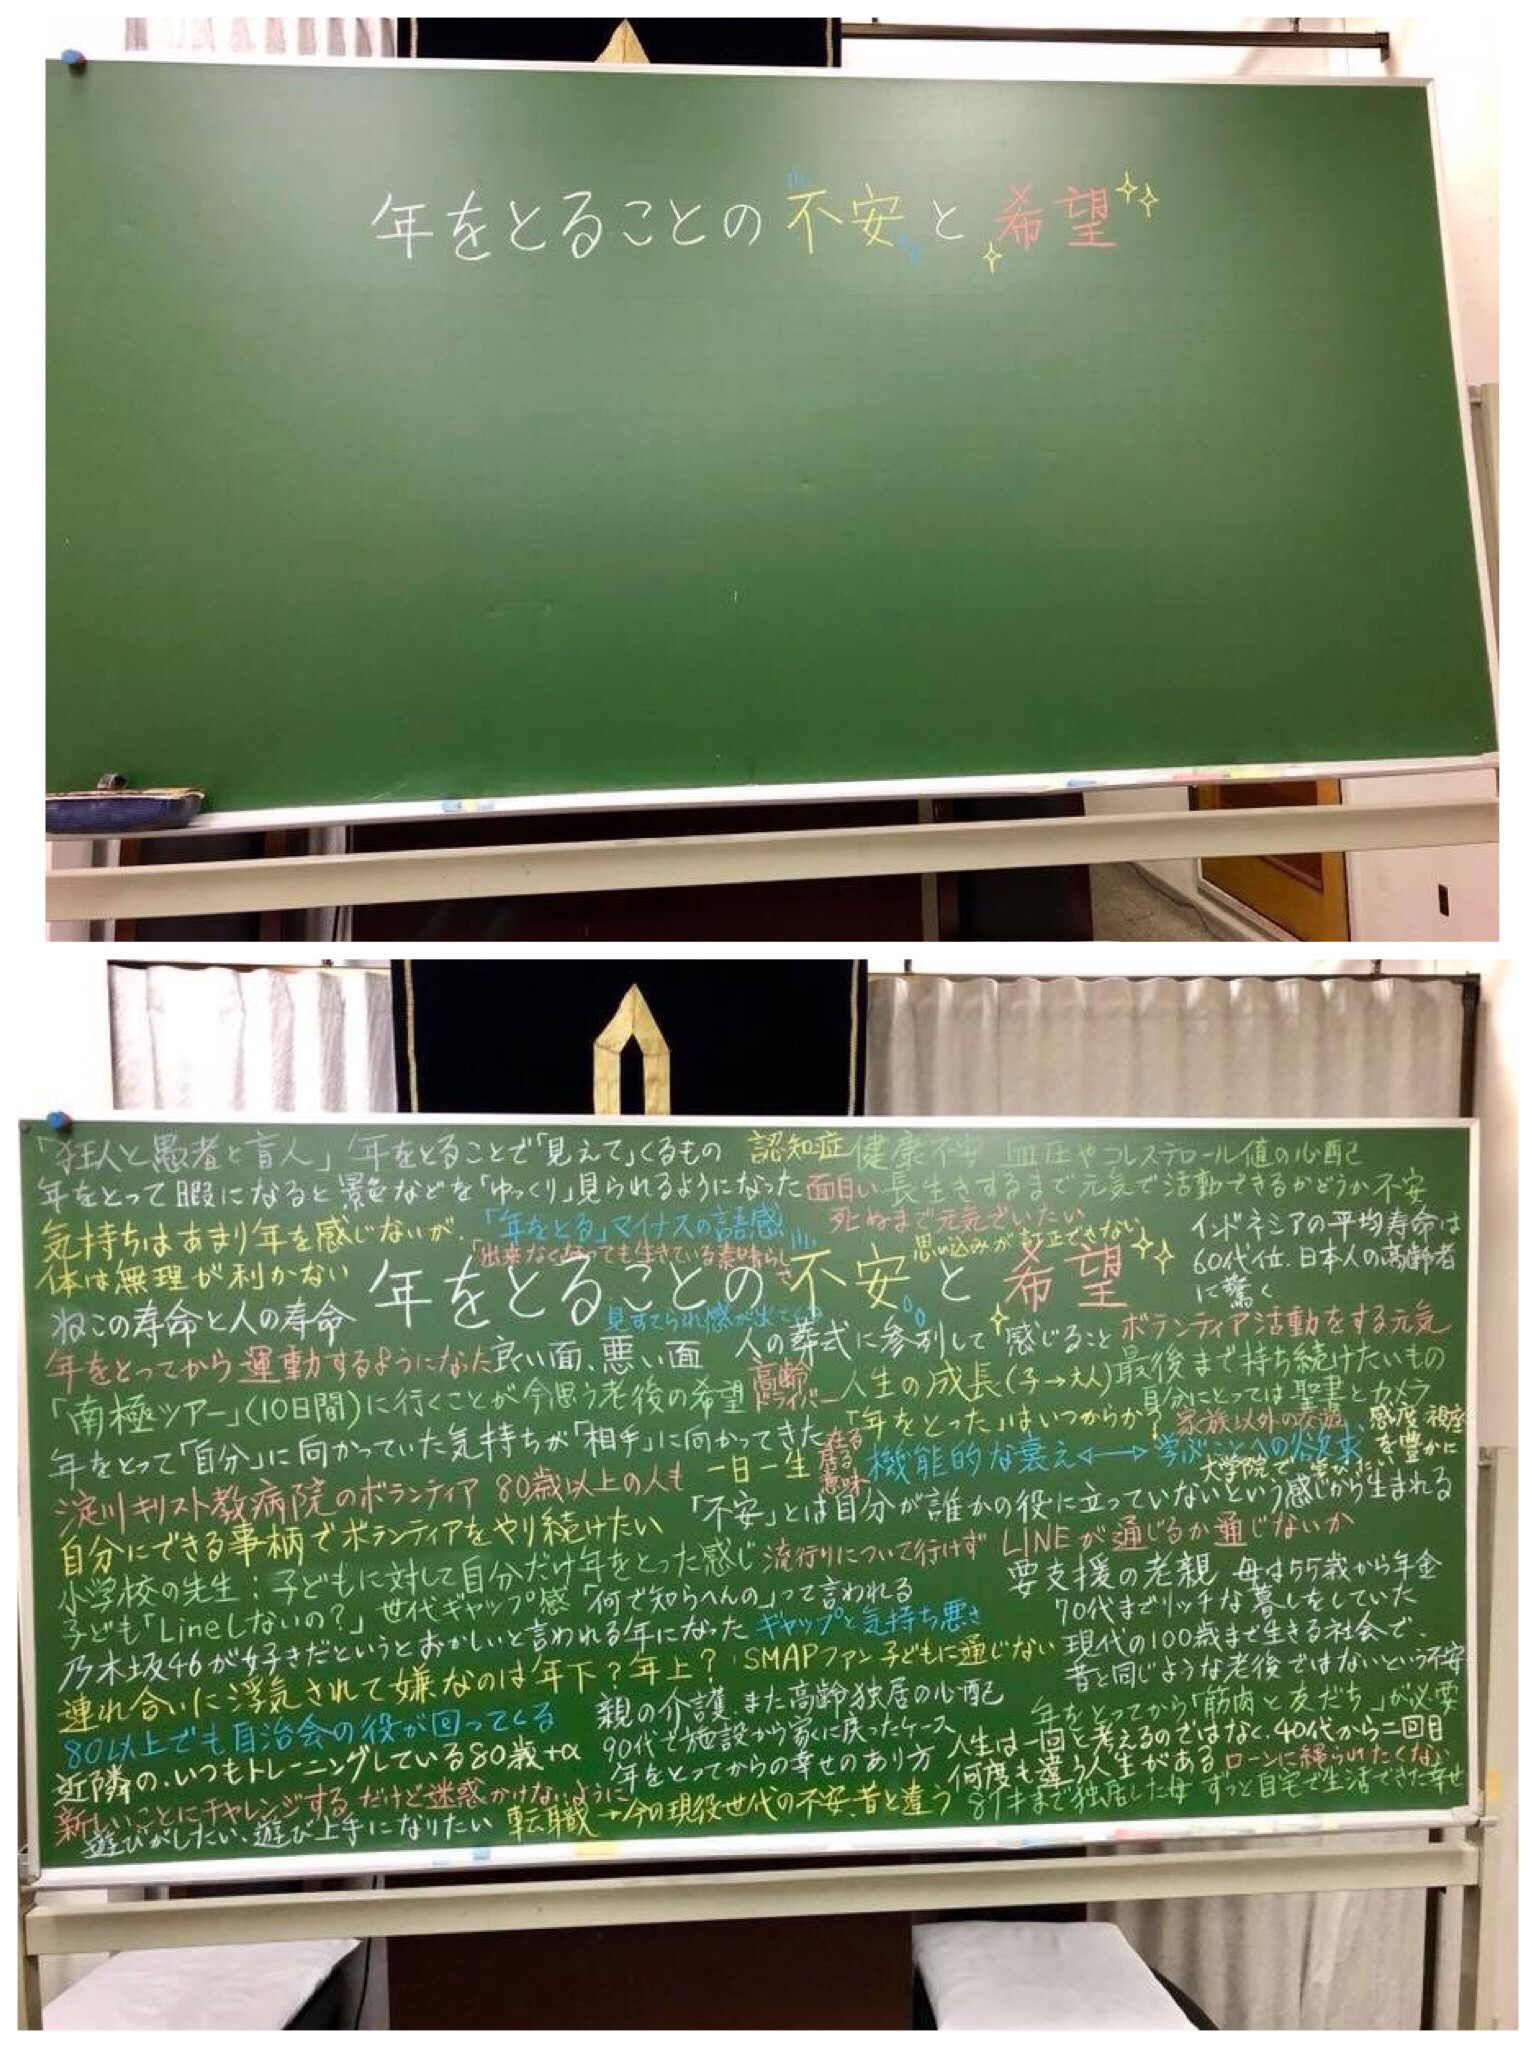 年をとることの不安と希望
「狂人と愚者と盲人」 年をとることで「見えて」くるもの 認知症 健康不安 血圧やコレステロール値の心配
年をとって暇になると景色などを「ゆっくり」見られるようになった 面白い 長生きするまで元気で活動できるかどうか不安
気持ちはあまり年を感じないが、 「年をとる」マイナスの語感 死ぬまで元気でいたい
体は無理が利かない 「出来なくなっても生きている素晴らしさ 思い込みが訂正できない
インドネシアの平均寿命は
60代位、日本人の高齢者
に驚く
年をとることの不安と希望
ねこの寿命と人の寿命 見すてられ感が出てくる
人の葬式に参列して感じること ボランティア活動をする元気
年をとってから運動するようになった 良い面、悪い面
高齢
ドライバー
人生の成長(子→大人) 最後まで持ち続けたいもの
自分にとっては聖書とカメラ
「南極ツアー」(10日間)に行くことが今思う老後の希望
「年をとった」はいつからか? 家族以外の交遊 感度 視座
を豊かに
年をとって「自分」に向かっていた気持ちが「相手」に向かってきた
在る
居る
意味
機能的な衰え↔学ぶことへの欲求
大学院で学びたい
淀川キリスト教病院のボランティア 80歳以上の人も 一日一生
「不安」とは自分が誰かの役に立っていないという感じから生まれる
自分にできる事柄でボランティアをやり続けたい
流行りについて行けず LINEが通じるか通じないか
小学校の先生:子どもに対して自分だけ年をとった感じ
子ども「Lineしないの?」 世代ギャップ感 「何で知らへんの」って言われる
要支援の老親 母は55歳から年金
70代までリッチな暮しをしていた
乃木坂46が好きだというとおかしいと言われる年になった ギャップと気持ち悪さ
現代の100歳まで生きる社会で、
昔と同じような老後ではないという不安
連れ合いに浮気されて嫌なのは年下?年上? SMAPファン子どもに通じない
80以上でも自治会の役が回ってくる
親の介護、また高齢独居の心配
年をとってから「筋肉と友だち」が必要
近隣の、いつもトレーニングしている80歳+α
90代で施設から家に戻ったケース
人生は一回と考えるのではなく、40代から二回目
年をとってからの幸せのあり方
何度も違う人生がある ローンに縛られたくない
新しいことにチャレンジする だけど迷惑かけないように
87才まで独居した母 ずっと自宅で生活できた幸せ
遊びがしたい、遊び上手になりたい 転職→今の現役世代の不安、昔と違う